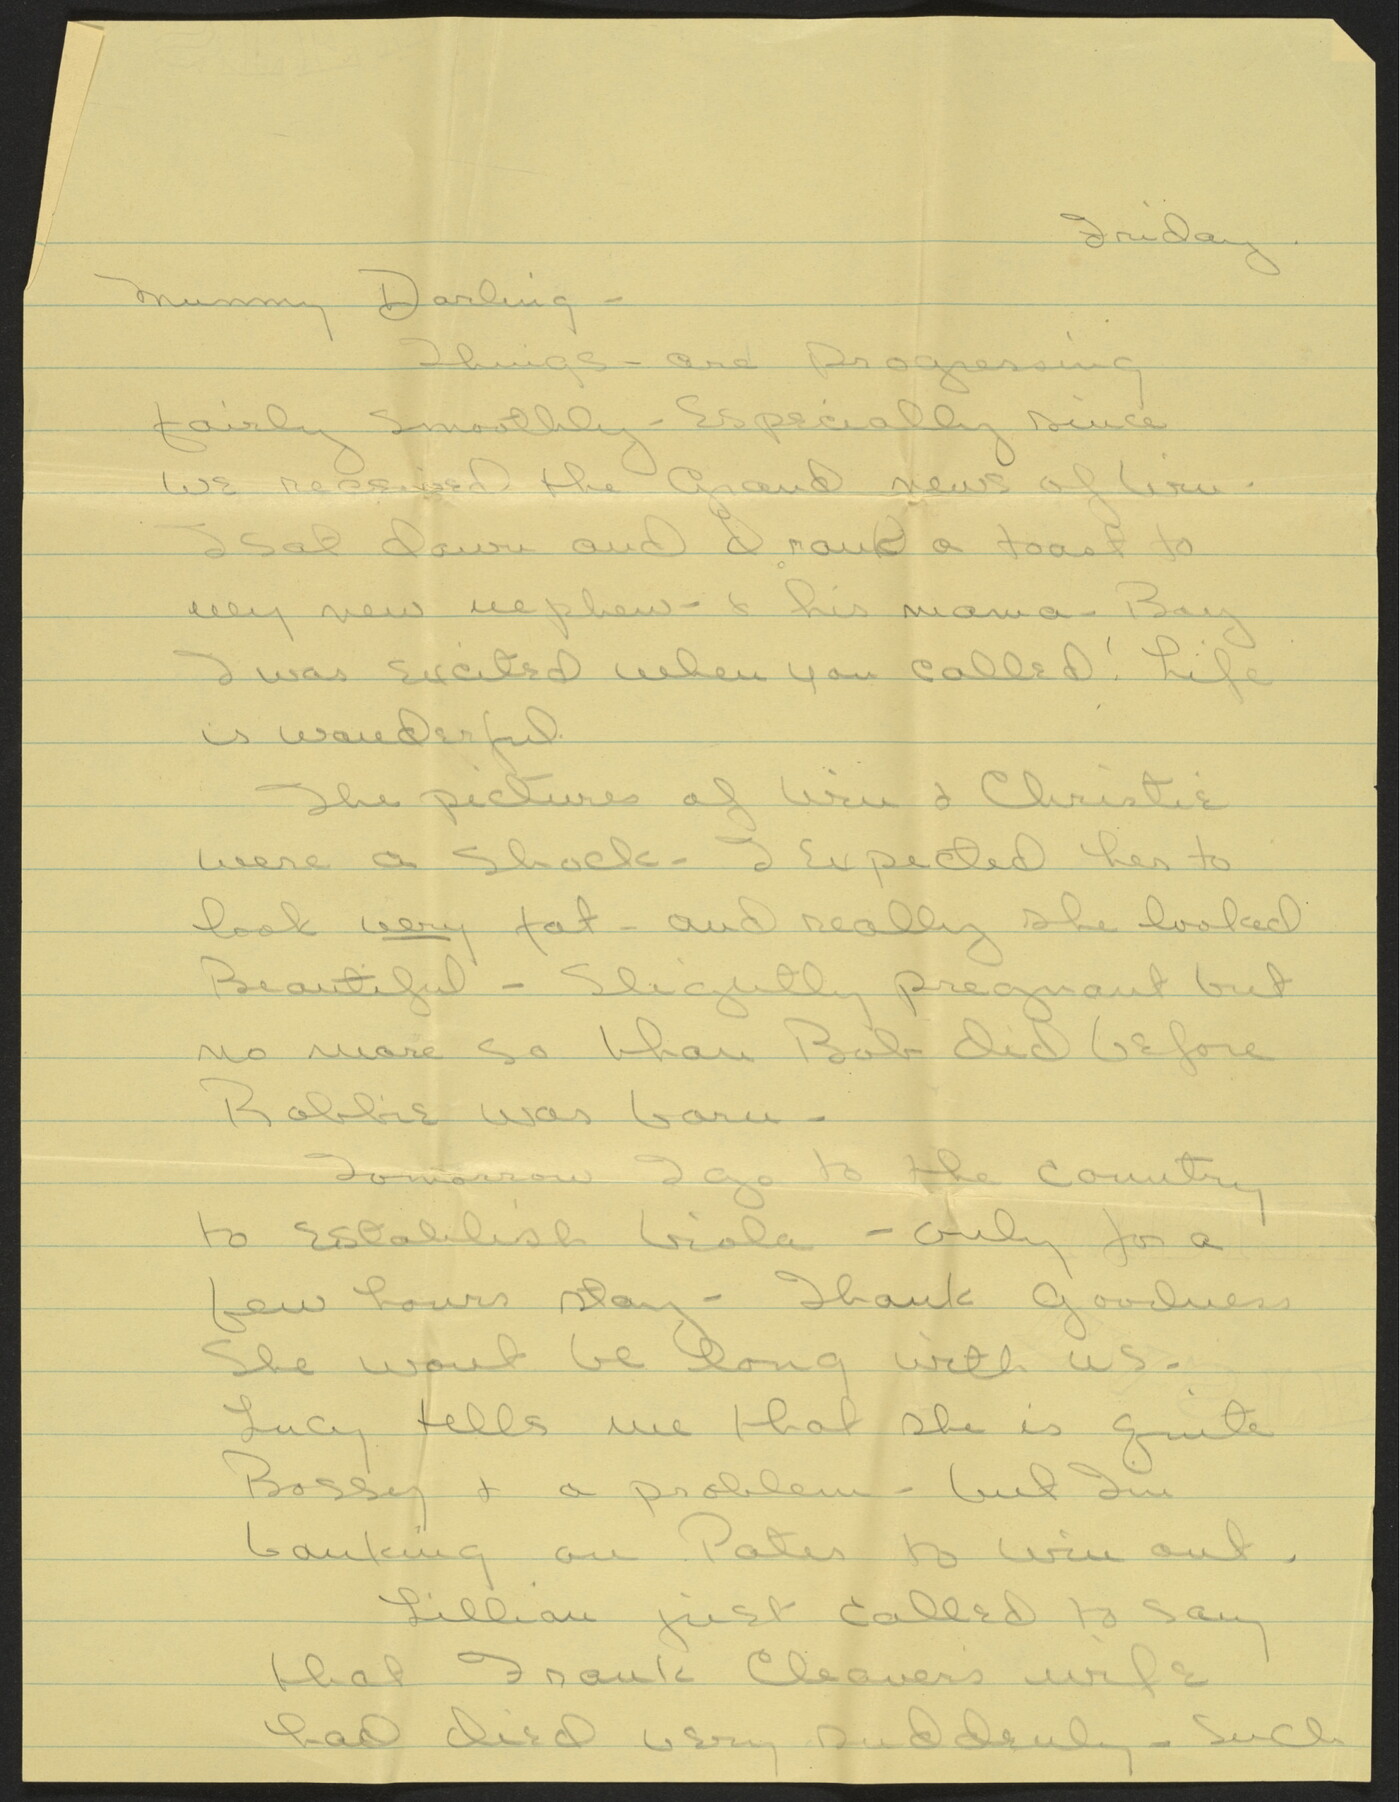 Friday.
Mummy Darling -
Things - are progressing
fairly smoothly - Especially since
we received the Grand news of Win.
I sat down and drank a toast to
my new nephew - & his mama - Boy
I was excited when you called! Life
is wonderful.
The pictures of Win & Christie
were a shock - I Expected her to
look very fat - and really she looked
Beautiful - Slightly pregnant but
no more so than Bob did before
Robbie was born -
Tomorrow I go to the country
to establish Viola - only for a
few hours stay - Thank Goodness
She wont be long with us -
Lucy tells me that she is quite
Bossy & a problem - but Im
banking on Pates to win out.
Lillian just called to say
that Frank Cleaver's wife
had died very suddenly - Such